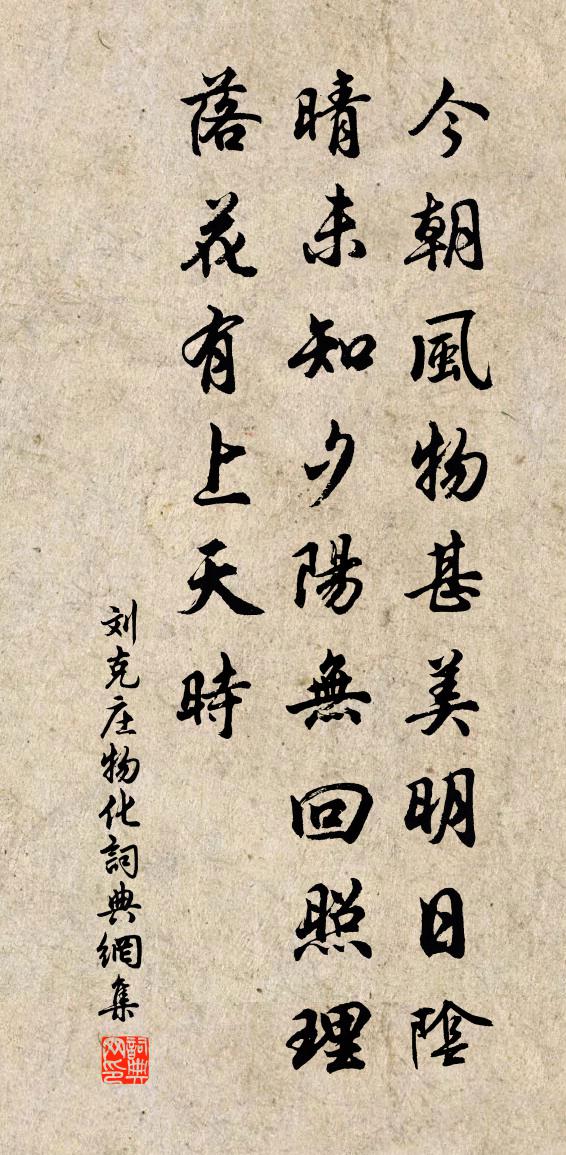 今朝風物甚美明日陰
晴未知夕陽無回照理
落花有上天時
刘克庄物化詞典網集
詞典网印